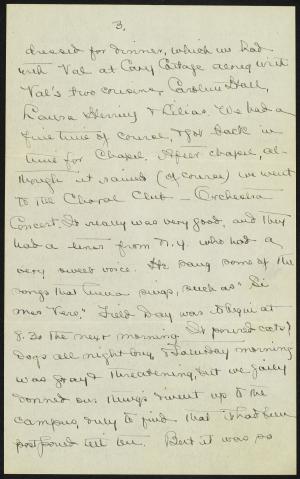 3.
dressed for dinner, which we had
with Val at Cary Cottage along with
Val's two cousins, Caroline Hall,
Laura & Lilias. We had a
fine time of course, & got back in
time for Chapel. After chapel, al-
though it rained (of course) we went
to the Choral Club - Orchestra
Concert. It really was very good, and they
had a tenor from N.Y. who had a
very sweet voice. He sang some of the
songs that sings, such as "Si
mes Vers." Field Day was to begin at
8.30 the next morning. It poured cats &
dogs all night long, & Saturday morning
was gray & threatening, but we gaily
donned our things & went up to the
campus, only to find that it had been
postponed till ten. But it was so